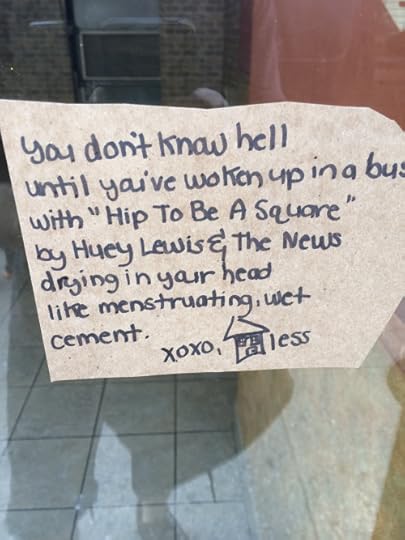 you don't know hell
until you've woken up in a bus
with "Hip To Be A Square"
by Huey Lewis & The News
drying in your head
like menstruating, wet
cement.
xoxo, less